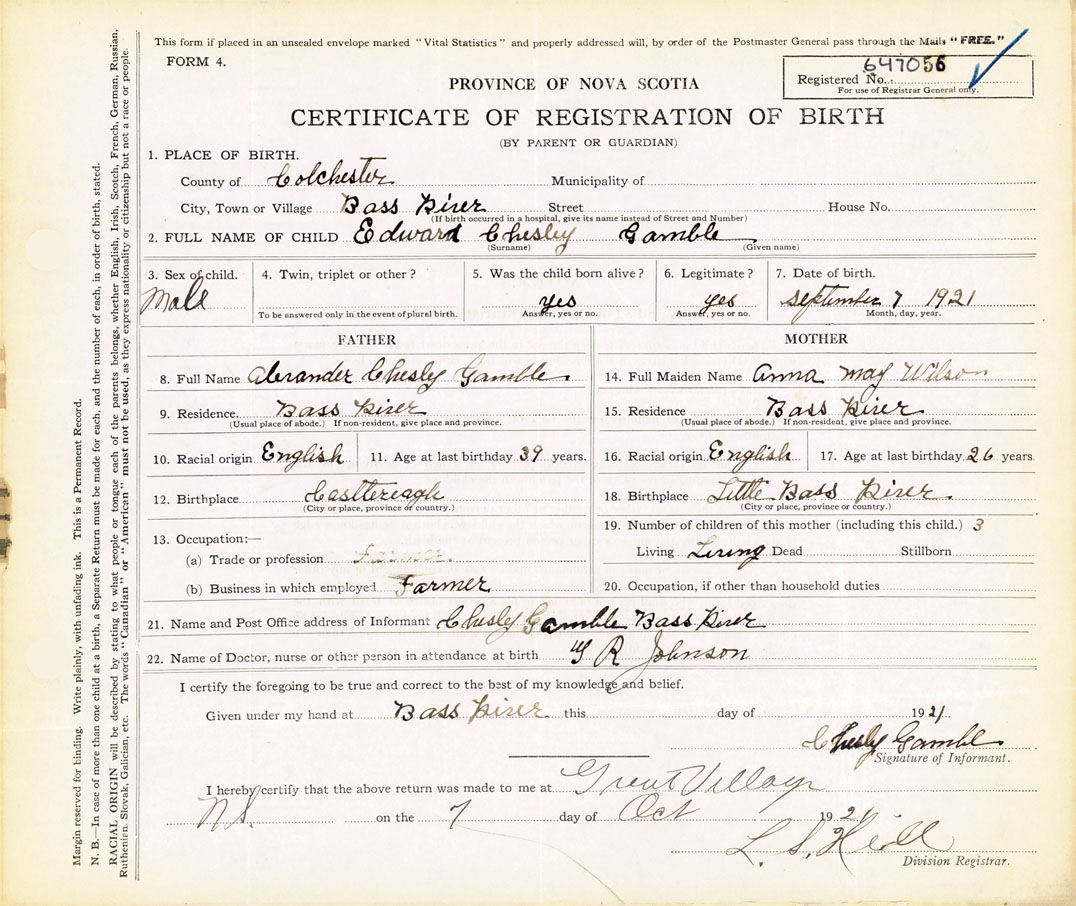 This form if placed in an unsealed envelope marked "Vital Statistics" and properly addressed will, by order of the Postmaster General pass through the Mails "FREE."
FORM 4.
647056
Registered No.
For use of Registrar General only.
PROVINCE OF NOVA SCOTIA
CERTIFICATE OF REGISTRATION OF BIRTH
(BY PARENT OR GUARDIAN)
1. PLACE OF BIRTH.
County of Colchester Municipality of
City, Town or Village Bass River Street House No.
(If birth occurred in a hospital, give its name instead of Street and Number)
2. FULL NAME OF CHILD Edward Chesley Gamble
(Surname) (Given name)
3. Sex of child. 4. Twin, triplet or other? 5. Was the child born alive? 6. Legitimate? 7. Date of birth.
Male yes yes September 7 1921
To be answered only in the event of plural birth. Answer, yes or no. Answer, yes or no. Month, day, year.
FATHER MOTHER
8. Full Name Alexander Chesly Gamble 14. Full Maiden Name Anna May Wilson
9. Residence. Bass River 15. Residence Bass River
(Usual place of abode.) If non-resident, give place and province. (Usual place of abode.) If non-resident, give place and province.
10. Racial origin English 11. Age at last birthday 39 years. 16. Racial origin English 17. Age at last birthday 26 years
12. Birthplace Castlereagh 18. Birthplace Little Bass River
(City or place, province or country.) (City or place, province or country.)
19. Number of children of this mother (including this child.) 3
13. Occupation:—
Living Living Dead Stillborn
(a) Trade or profession Farmer
(b) Business in which employed Farmer 20. Occupation, if other than household duties
21. Name and Post Office address of Informant Chesly Gamble Bass River
22. Name of Doctor, nurse or other person in attendance at birth R Johnson
I certify the foregoing to be true and correct to the best of my knowledge and belief.
Given under my hand at Bass River this day of 1921
Chesly Gamble
Signature of Informant.
I hereby certify that the above return was made to me at Great Village
N.S. on the 7 day of Oct 1921
L. S.
Division Registrar.
Margin reserved for binding. Write plainly, with unfading ink. This is a Permanent Record.
N. B.—In case of more than one child at a birth, a Separate Return must be made for each, and the number of each, in order of birth, stated.
RACIAL ORIGIN will be described by stating to what people or tongue each of the parents belongs, whether English, Irish, Scotch, French, German, Russian,
Ruthenian, Slovak, Galician, etc. The words "Canadian" or "American" must not be used, as they express nationality or citizenship but not a race or people.